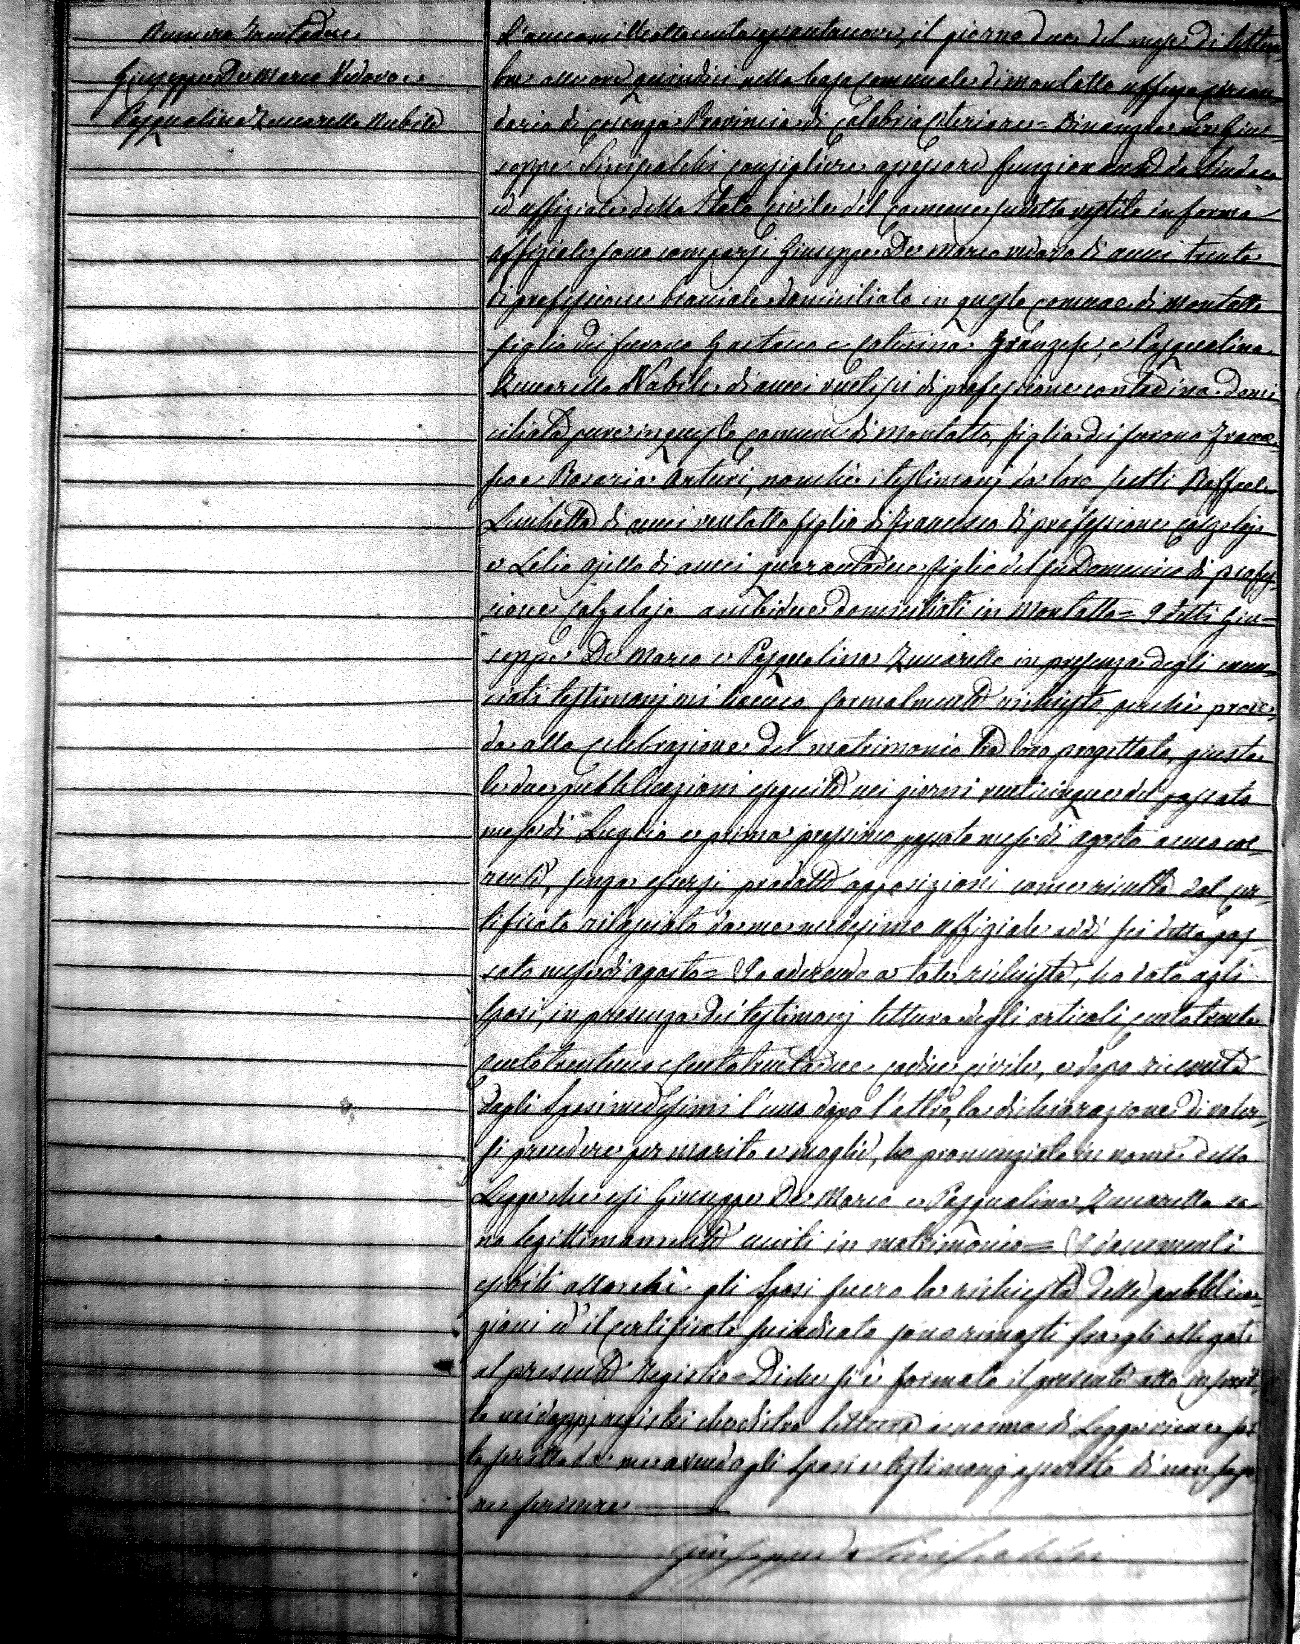 Numero Trentadue
Giuseppe De Marco Vedovo e
Pasqualina Zuccarello Nubile
L'anno mille ottocento sessantanove, il giorno due del mese di Settem-
bre alle ore quindici nella Casa Comunale di Montalto Uffugo circon-
dario di Cosenza Provincia di Calabria Citeriore = Dinanzi a me Giu-
seppe Siniscalchi consigliere assessore funzionante da Sindaco
ed uffiziale dello Stato Civile del comune sudetto vestito in forma
uffiziale sono comparsi Giuseppe De Marco vedovo di anni trenta
di professione bracciale domiciliato in questo comune di Montalto
figlio dei furono Gaetano e Caterina e Pasqualina
Zuccarello Nubile di anni ventisei di professione contadina domi-
ciliata pure in questo comune di Montalto, figlia dei furono Frances-
co e Rosaria Arturi, nonchè i testimonj da loro scelti Raffaele
di anni ventotto figlio di Francesco di professione calzolajo
e Lelio di anni quarantadue figlio del fu Domenico di profes-
sione calzolajo ambidue domiciliati in Montalto = I detti Giu-
seppe De Marco e Pasqualina Zuccarello in presenza degli enun-
ciati testimonj mi hanno formalmente richiesto perchè proce-
da alla celebrazione del matrimonio tra loro progettato, giusta
le due pubblicazioni eseguite nei giorni venticinque del passato
mese di Luglio e primo prossimo passato mese di Agosto anno cor-
rente, senza essersi prodotte opposizioni come risulta dal cer-
tificato rilasciato da me medesimo uffiziale addì sei detto pas-
sato mese di Agosto = Io aderendo a tale richiesta, ho dato agli
Sposi, in presenza dei testimonj lettura degli articoli centotrenta
centotrentuno e centotrentadue codice civile, e dopo ricevuta
dagli Sposi medesimi l'uno dopo l'altro, la dichiarazione di voler-
si prendere per marito e moglie, ho pronunziato in nome della
Legge che essi Giuseppe De Marco e Pasqualina Zuccarello so-
no legittimamente uniti in matrimonio = I documenti
esibiti allorchè gli Sposi fecero la richiesta delle pubblica-
zioni ed il certificato suindicato sono rimasti fra gli allegati
al presente Registro = Di che si è formato il presente atto inscrit-
to nei doppi registri che datene lettura a norma di Legge viene
sottoscritto da me avendo gli Sposi e testimonj asserito di non sape-
re firmare
Giuseppe Siniscalchi